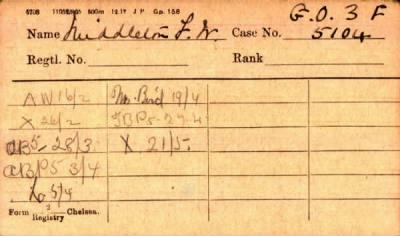 5708 500m 12.17 J P Gp. 158
G.O. 3 F
Name Middleton F. W. Case No. 5104
Regtl. No. Rank
AW 16/2 Mr. Bird 19/4
X 26/2 JBP5 - 27.4
AB5 - 28/3 X. 21/5.
ABP5 3/4
Lo 5/4
Form 2 Registry — Chelsea.